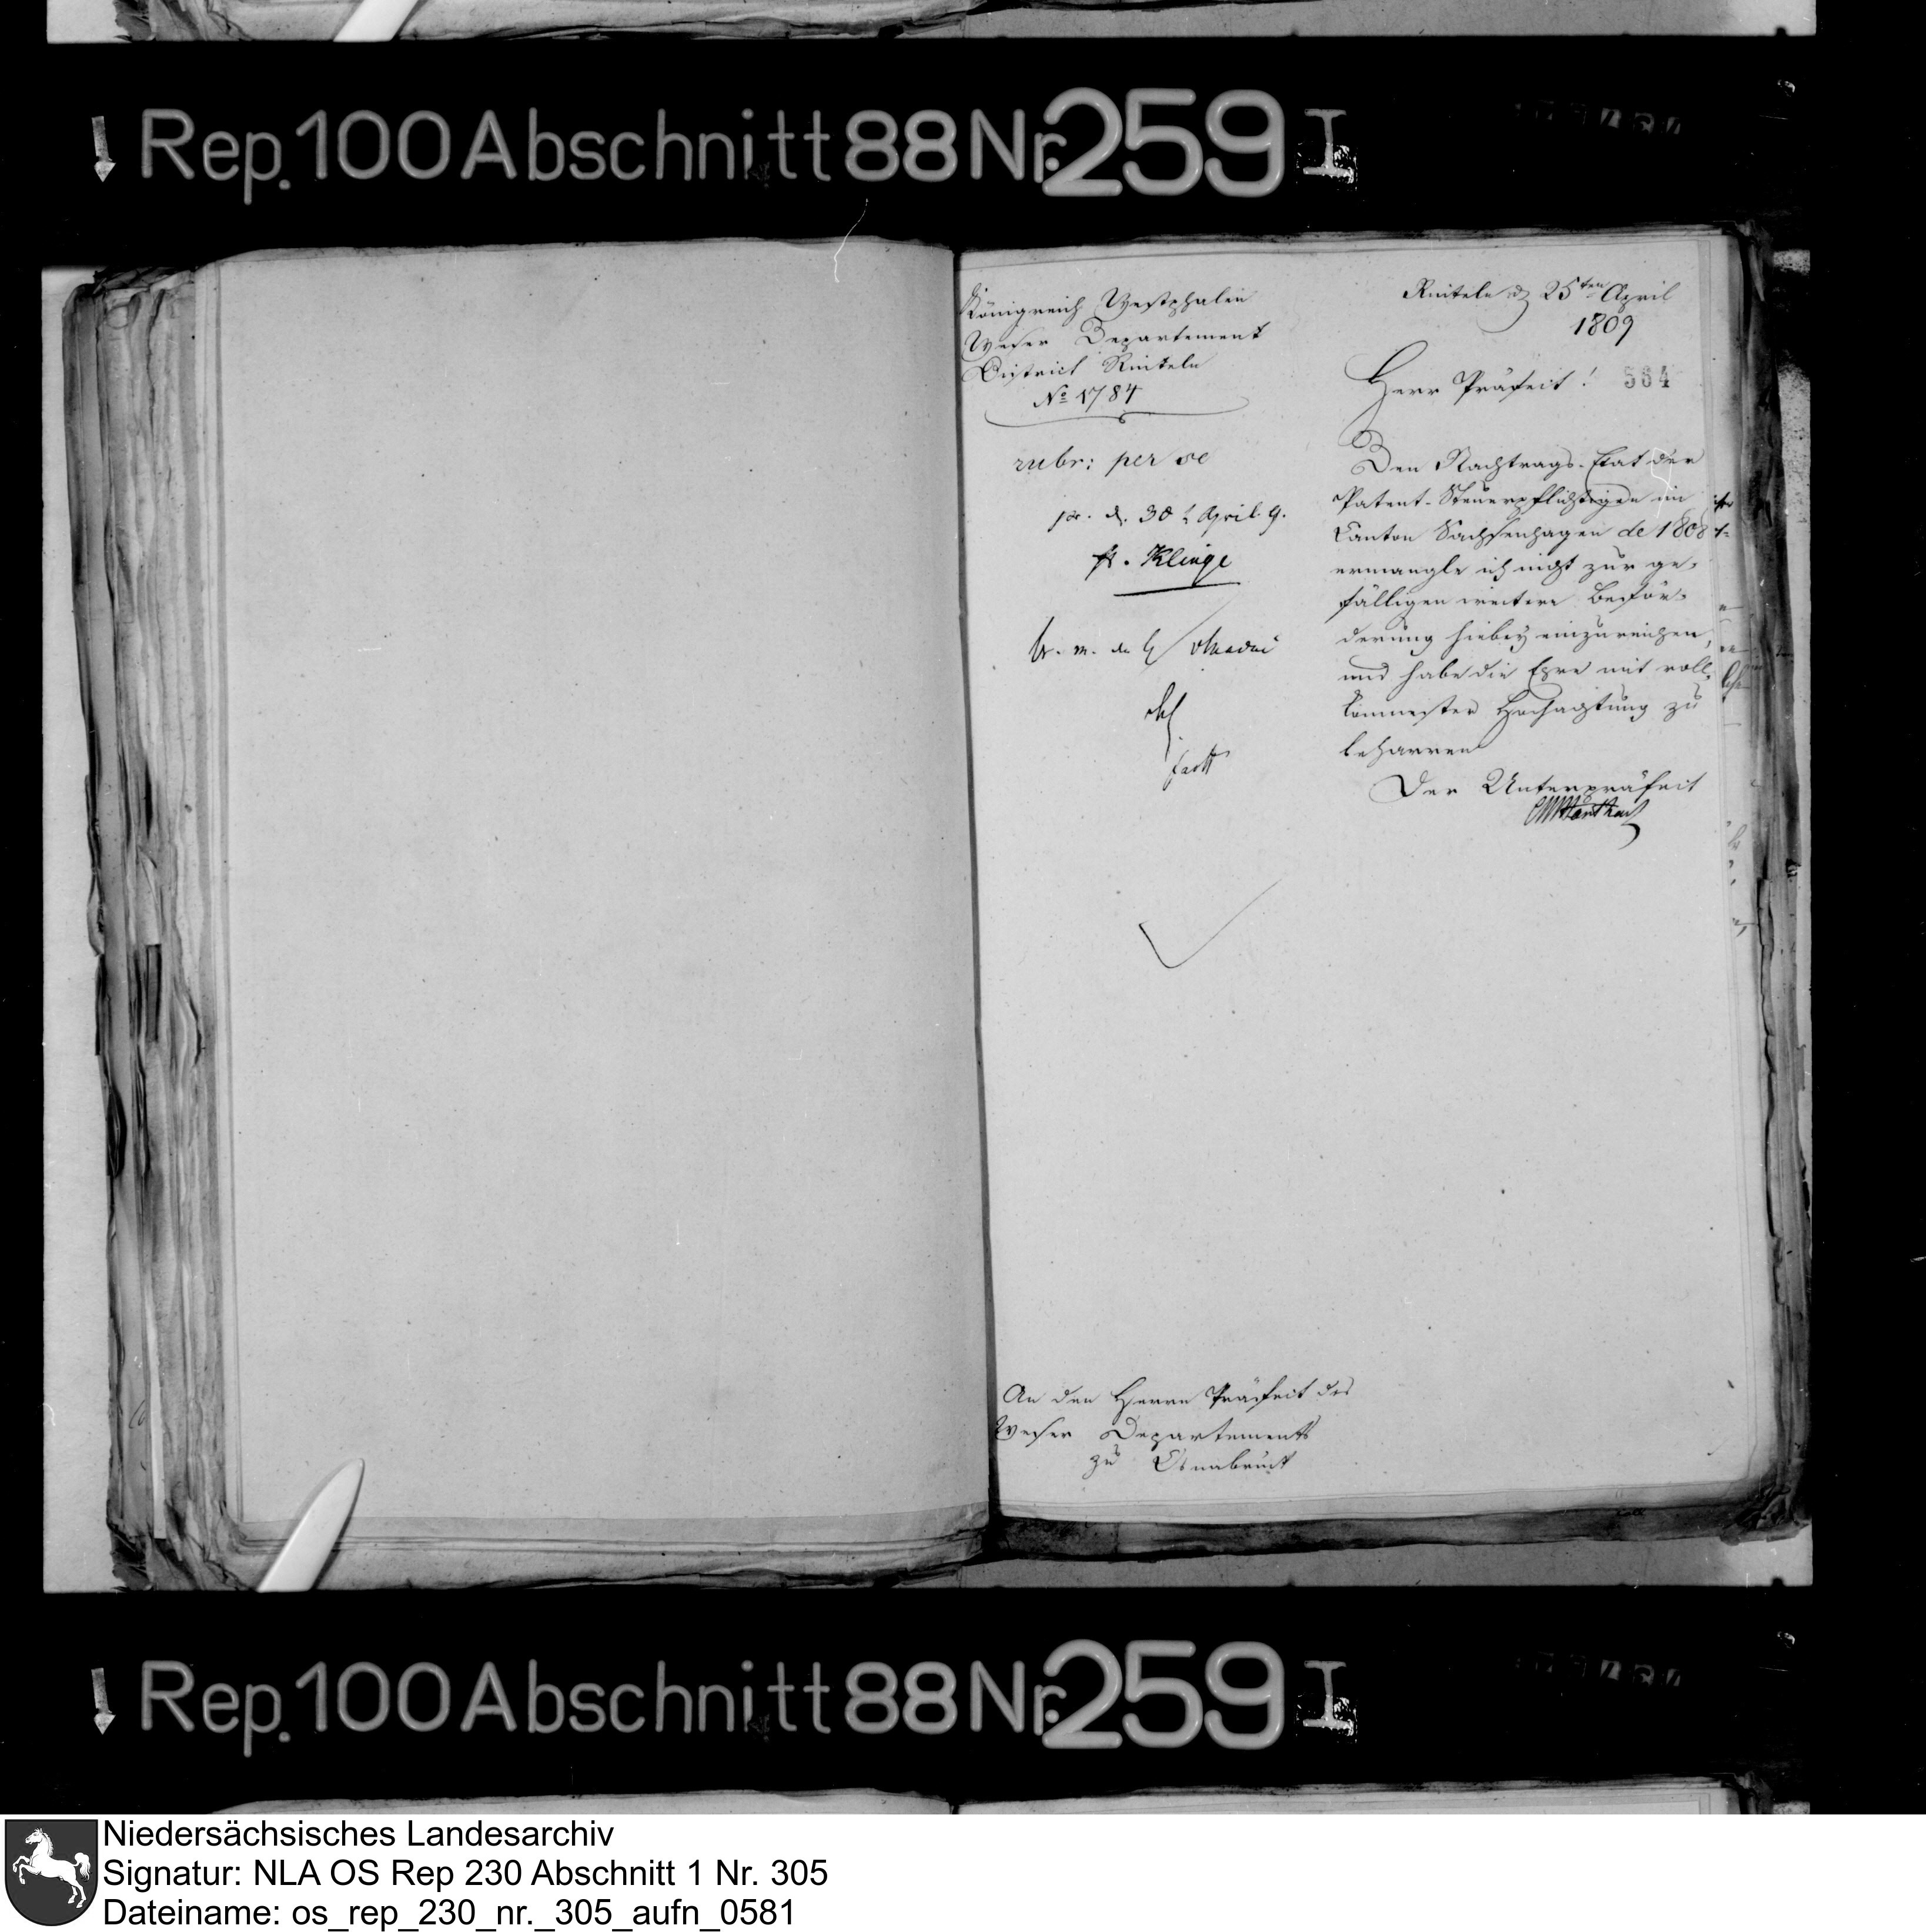 Rep. 100 Abschnitt 88 Nr. 259 I
Königreich Westphalen
Weser Departement
District Rinteln
No 1784
rubr: per se
pr. d. 30t April 9.
Klinge
br. m.
Rinteln d 25ten April
1809
Herr Präfect!
564
Den Nachtrags-Etat der
Patent-Steuerpflichtigen im
Canton Sachsenhagen de 1808
ermangle ich nicht zur ge-
fälligen weitern Beför-
derung hiebey einzureichen,
und habe die Ehre mit voll-
kommenster Hochachtung zu
beharren
Der Unterpräfect
An den Herrn Präfect des
Weser Departements
zu Osnabrück
Rep. 100 Abschnitt 88 Nr. 259 I
Niedersächsisches Landesarchiv
Signatur: NLA OS Rep 230 Abschnitt 1 Nr. 305
Dateiname: os_rep_230_nr._305_aufn_0581